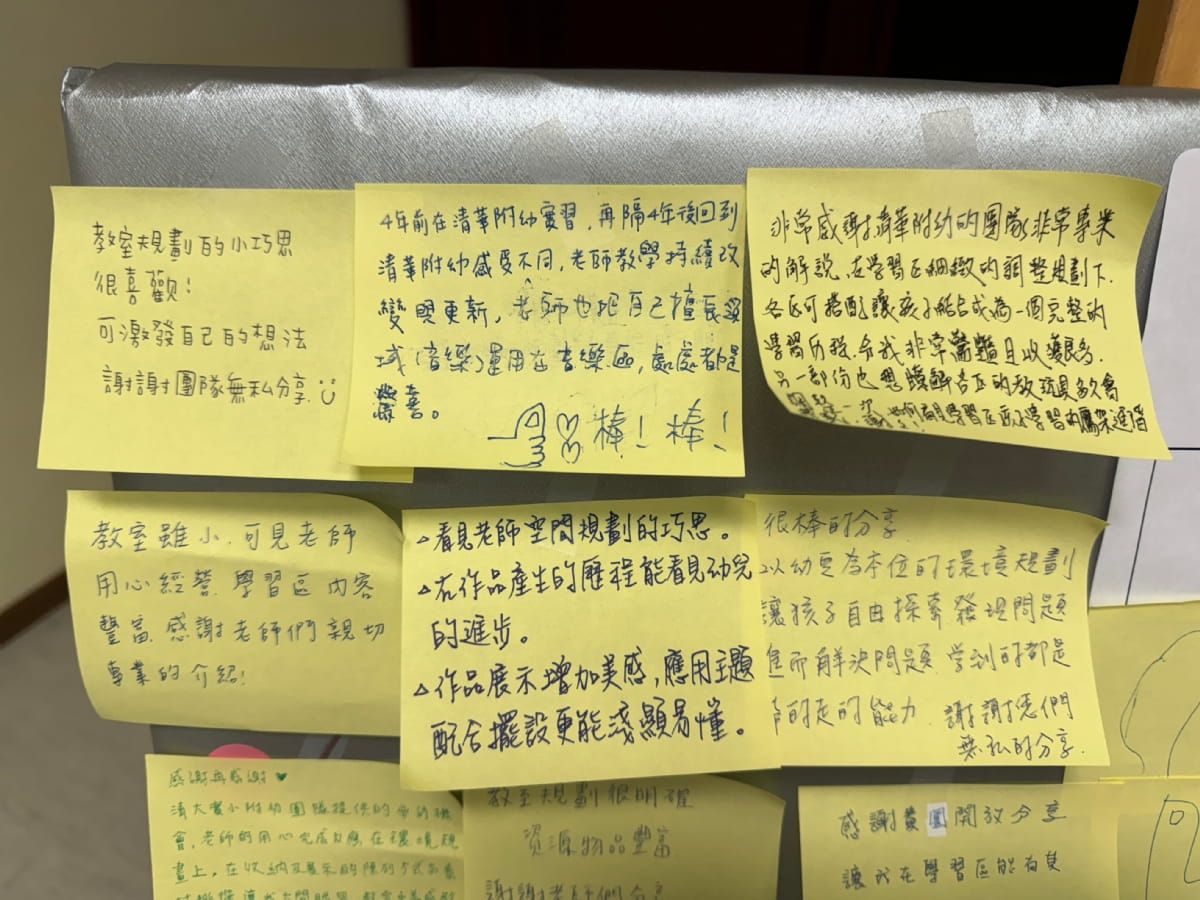 教室規劃的小巧思
很喜歡!
可激發自己的想法
謝謝團隊無私分享
4年前在清華附幼實習,再隔4年後回到
清華附幼感受不同,老師教學持續改
變與更新,老師也把自己擅長領
域(音樂)運用在音樂區,處處都是
驚喜。
棒!棒!
非常感謝清華附幼的團隊非常專業
的解說,在學習區細緻的調整規劃下,
各區可搭配讓孩子結合成為一個完整的
學習歷程,令我非常驚豔且收獲良多,
另一部份也想瞭解各區的教玩具多久會
學習區 學習的鷹架進階
教室雖小,可見老師
用心經營,學習區內容
豐富,感謝老師們親切
專業的介紹!
△看見老師空間規劃的巧思。
△在作品產生的歷程能看見幼兒
的進步。
△作品展示增加美感,應用主題
配合擺設更能淺顯易懂。
很棒的分享,
以幼兒為本位的環境規劃
讓孩子自由探索發現問題
進而解決問題,學到的都是
的能力,謝謝您們
無私的分享.
感謝再感謝♥
清大實小附幼團隊提供的參訪機
會,老師的用心完成 在環境規
畫上,在收納及展示的陳列方式
教室規劃很明確
資源物品豐富
謝謝老師們分享
感謝貴園開放分享
讓我在學習區能有更